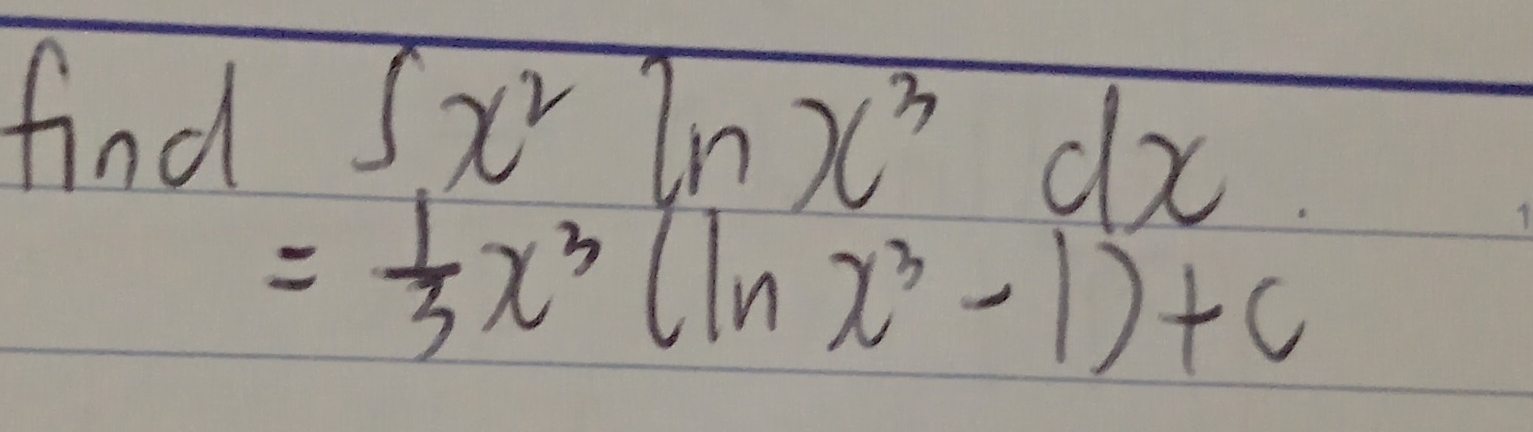 find ∫x² ln x³ dx.
= 1/3 x³ (ln x³ - 1) + c